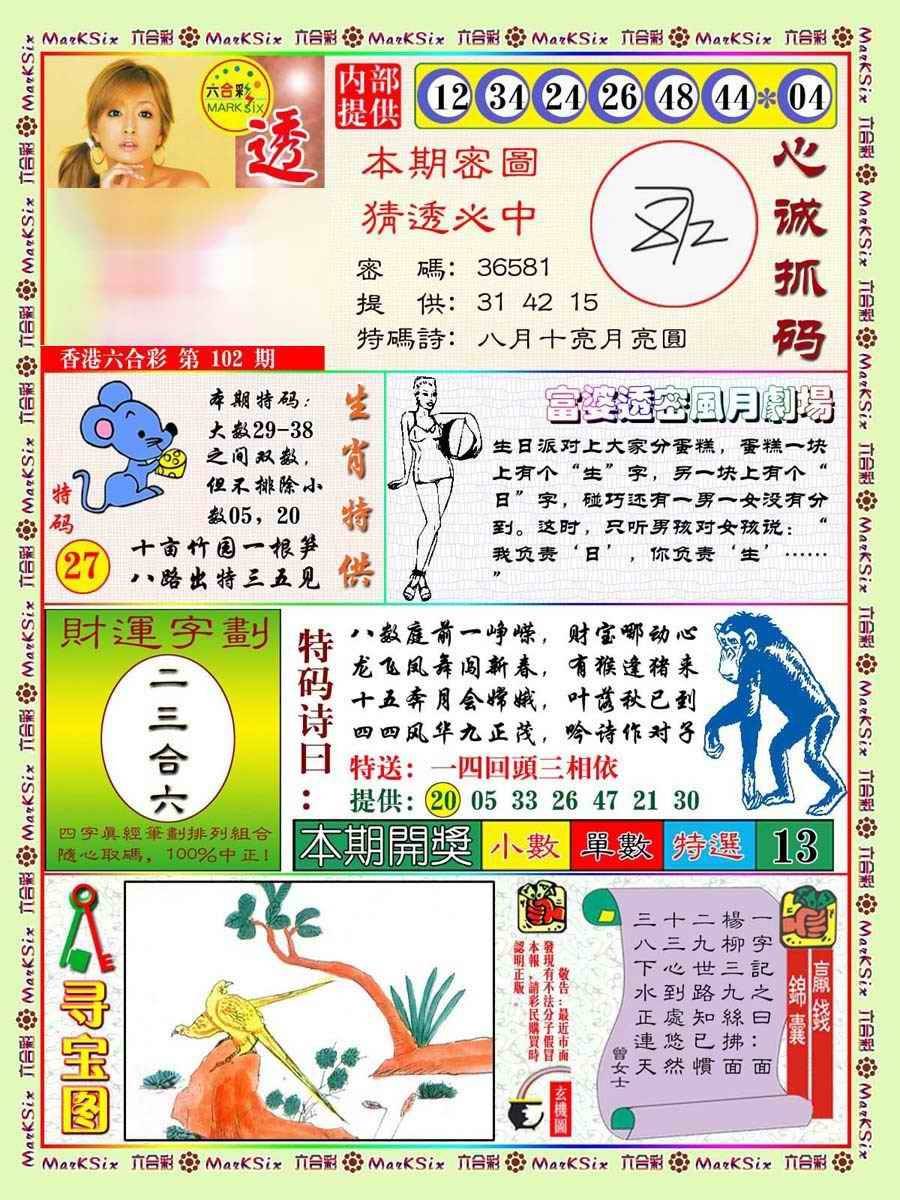 六合彩
MARK six
透
内部
提供
12 34 24 26 48 44 * 04
本期密圖
猜透必中
密 碼: 36581
提 供: 31 42 15
特碼詩: 八月十亮月亮圓
心诚抓码
香港六合彩 第 102 期
本期特码:
大数29-38
之间双数,
但不排除小
数05,20
十亩竹园一根笋
八路出特三五见
特码
27
生肖特供
富婆透密風月劇場
生日派对上大家分蛋糕,蛋糕一块
上有个“生”字,另一块上有个“
日”字,碰巧还有一男一女没有分
到。这时,只听男孩对女孩说:“
我负责‘日’,你负责‘生’……
”
財運字劃
二三合六
四字真經筆劃排列組合
隨心取碼,100%中正!
特码诗曰:
八数庭前一峥嵘,财宝哪动心
龙飞凤舞闯新春,有猴逢猪来
十五奔月会嫦娥,叶落秋已到
四四风华九正茂,吟诗作对子
特送:一四回頭三相依
提供: 20 05 33 26 47 21 30
本期開獎 小數 單數 特選 13
寻宝图
敬告:最近市面
發現有不法分子假冒
本報,請彩民購買時
認明正版。
玄機圖
贏錢
錦囊
一字記之曰:面
楊柳三九絲拂面
二九世路知已慣
十三心到處悠然
三八下水正連天
曾女士
MarKSix 六合彩 MarKSix 六合彩 MarKSix 六合彩 MarKSix 六合彩 MarKSix 六合彩